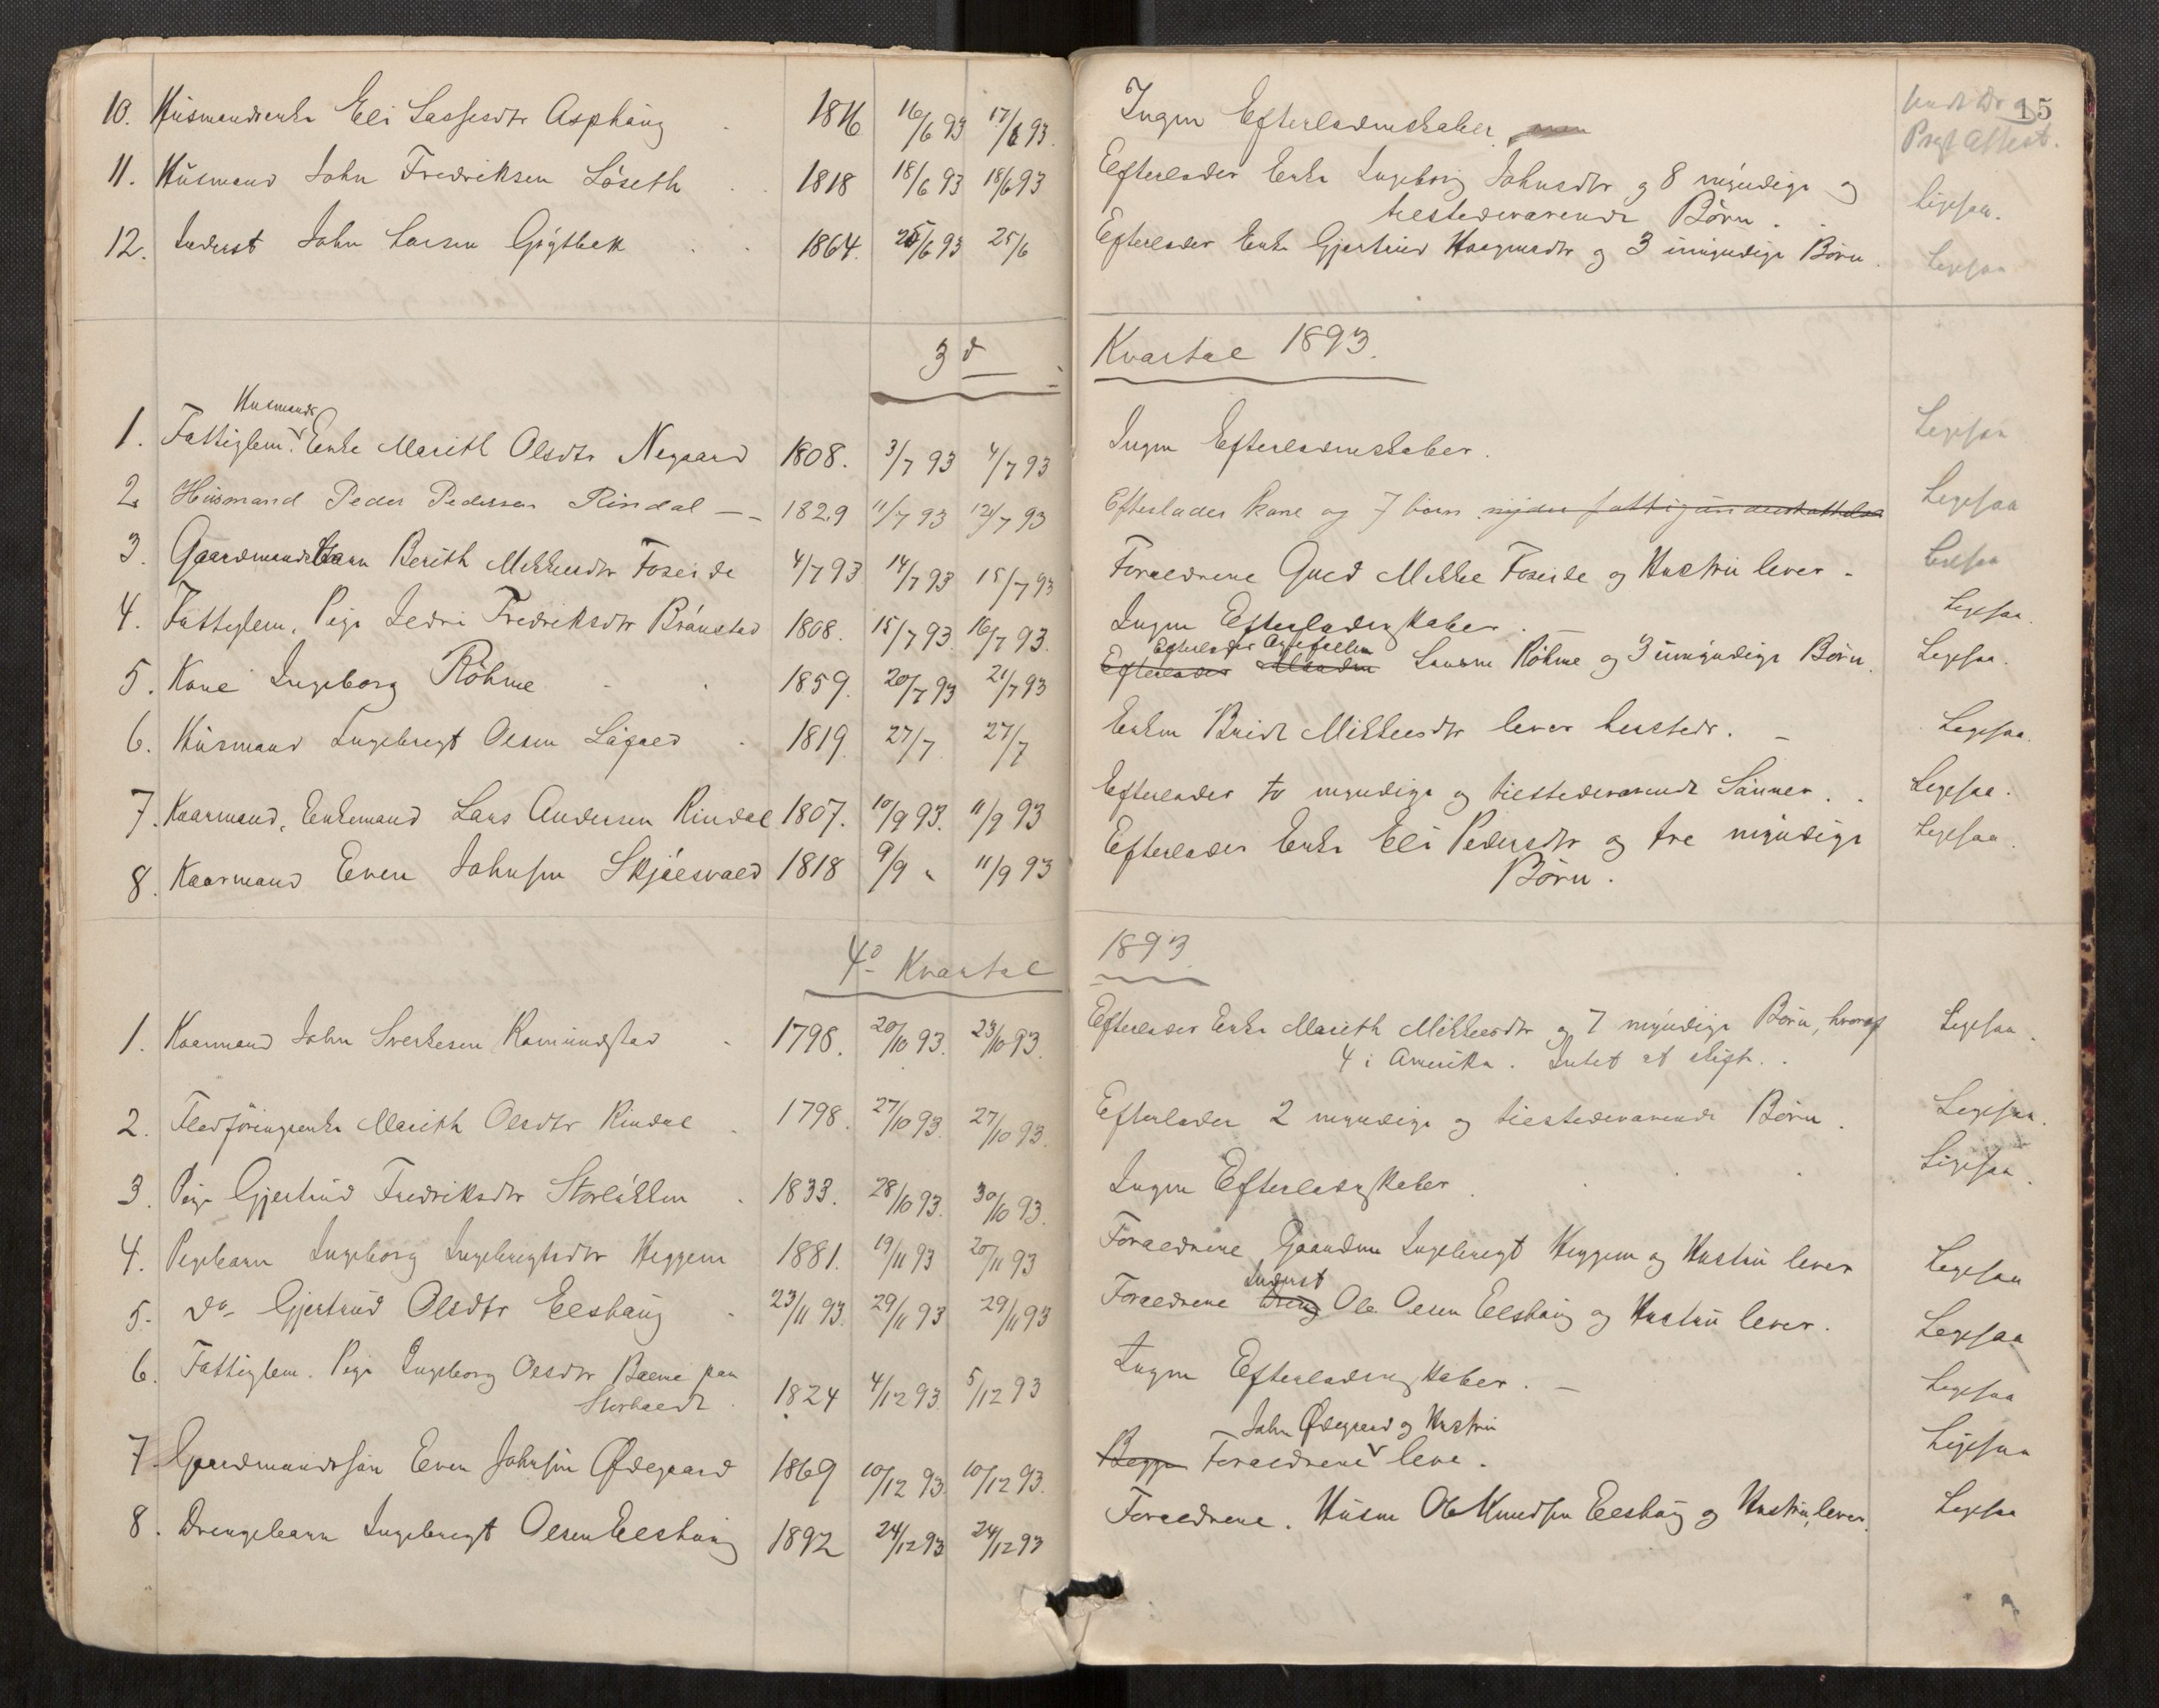 15
10. Husmandsenke Eli Lassesdtr Asphaug 1816 16/6 93 17/6 93. Ingen Efterladenskaber
Pngl Attest.
11. Husmand John Fredriksen Löseth 1818 18/6 93 18/6 93 Efterlader Enke Ingeborg Johnsdtr og 8 myndige og Ligesaa.
tilstedeværende Börn.
12. Inderst John Larsen Grytbak 1864. 25/6 93 25/6 Efterlader Enke Gjertrud Haagensdtr og 3 umyndige Börn. Ligesaa
3d Kvartal 1893.
Husmands
1. Fattiglem. Enke Marith Olsdtr Negaard 1808. 3/7 93 4/7 93 Ingen Efterladenskaber. Ligesaa
2. Husmand Peder Pedersen Rindal 1829 11/7 93 12/7 93 Efterlader kone og 7 börn nyder fattigunderstøttelse Ligesaa
3. Gaardmandsbarn Berith Mikkelsdtr Foseide 4/7 93 14/7 93 15/7 93 Forældrene Gmd Mikkel Foseide og Hustru lever. Ligesaa
4. Fattiglem. Pige Sedri Fredriksdtr Brånstad 1808. 15/7 93. 16/7 93. Ingen Efterladenskaber. Ligesaa.
Efterlader
5. Kone Ingeborg Röhme 1859. 20/7 93 21/7 93 Efterlader Larsen Röhme og 3 umyndige Börn. Ligesaa.
6. Husmand Ingebrigt Olsen Lögald 1819. 27/7 27/7 Enken Brit Mikkelsdtr lever hersteds. Ligesaa.
7. Kaarmand, Enkemand Lars Andersen Rindal 1807. 10/9 93. 11/9 93 Efterlader to myndige og tilstedeværende Sönner. Ligesaa.
8. Kaarmand Even Johnsen Skjölsvold 1818 9/9 " 11/9 93 Efterlader Enke Eli Pedersdtr og tre myndige Ligesaa.
Börn.
4d Kvartal 1893
1. Kaarmand John Sverkesen Romundstad 1798. 20/10 93. 23/10 93. Efterlader Enke Marith Mikkelsdtr og 7 myndige Börn, hvoraf Ligesaa.
4 i Amerika. Intet at skifte.
2. Fladföringsenke Marith Olsdtr Rindal 1798. 27/10 93. 27/10 93. Efterlader 2 myndige og tilstedeværende Börn. Ligesaa.
3. Pige Gjertrud Fredriksdtr Storlökken 1833. 28/10 93. 30/10 93. Ingen Efterladenskaber. Ligesaa.
4. Pigebarn Ingeborg Ingebrigtsdtr Heggem 1881. 19/11 93 20/11 93 Forældrene Gaardm Ingebrigt Heggem og Hustru lever Ligesaa
Inderst
5. do Gjertrud Olsdtr Elshaug 23/11 93. 29/11 93 29/11 93 Forældrene Dreng Ole Olsen Elshaug og Hustru lever. Ligesaa
6. Fattiglem. Pige Ingeborg Olsdtr Bolme paa
Storholdt. 1824 4/12 93. 5/12 93 Ingen Efterladenskaber. Ligesaa
John Ødegaard og Hustru
7. Gaardmandssön Even Johnsen Ødegaard 1869 10/12 93. 10/12 93. Begge Forældrene leve. Ligesaa
8. Drengebarn Ingebrigt Olsen Elshaug 1892 24/12 93 24/12 93 Forældrene. Husm Ole Knudsen Elshaug og Hustru, lever. Ligesaa